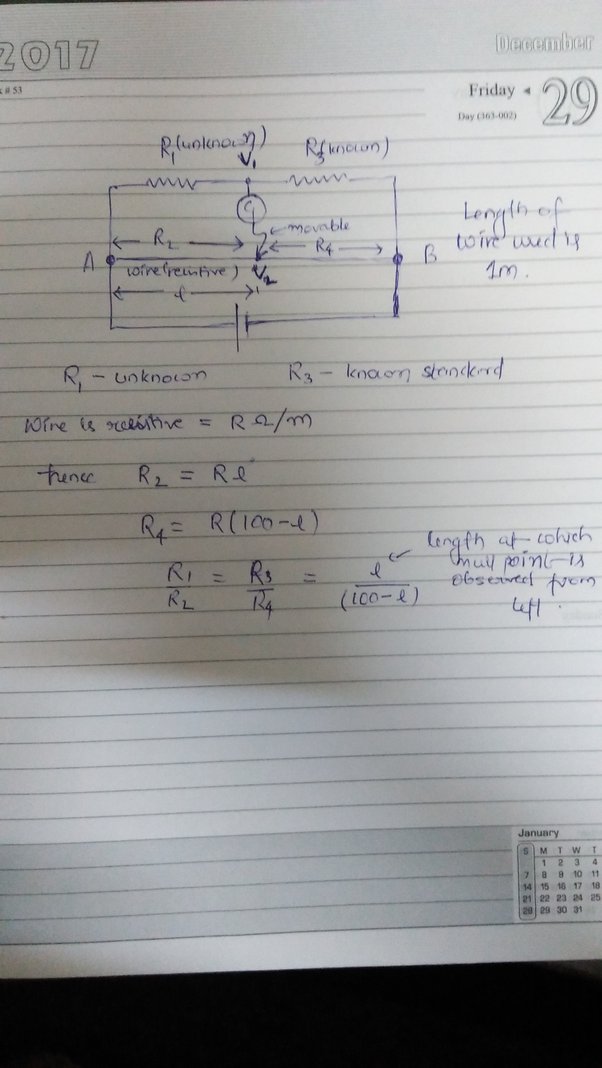 2017
December
# 53
Friday
29
Day (363-002)
R₁(unknown)
V₁
R₃(known)
G
movable
R₂
R₄
A
B
wire(resistive)
V₂
l
Length of
wire used is
1m.
R₁ - unknown
R₃ - known standard
Wire is resistive = R Ω/m
hence R₂ = Rl
R₄ = R(100-l)
R₁/R₂ = R₃/R₄ = l/(100-l)
length at which
null point is
observed from
left.
January
S M T W T
1 2 3 4
7 8 9 10 11
14 15 16 17 18
21 22 23 24 25
28 29 30 31